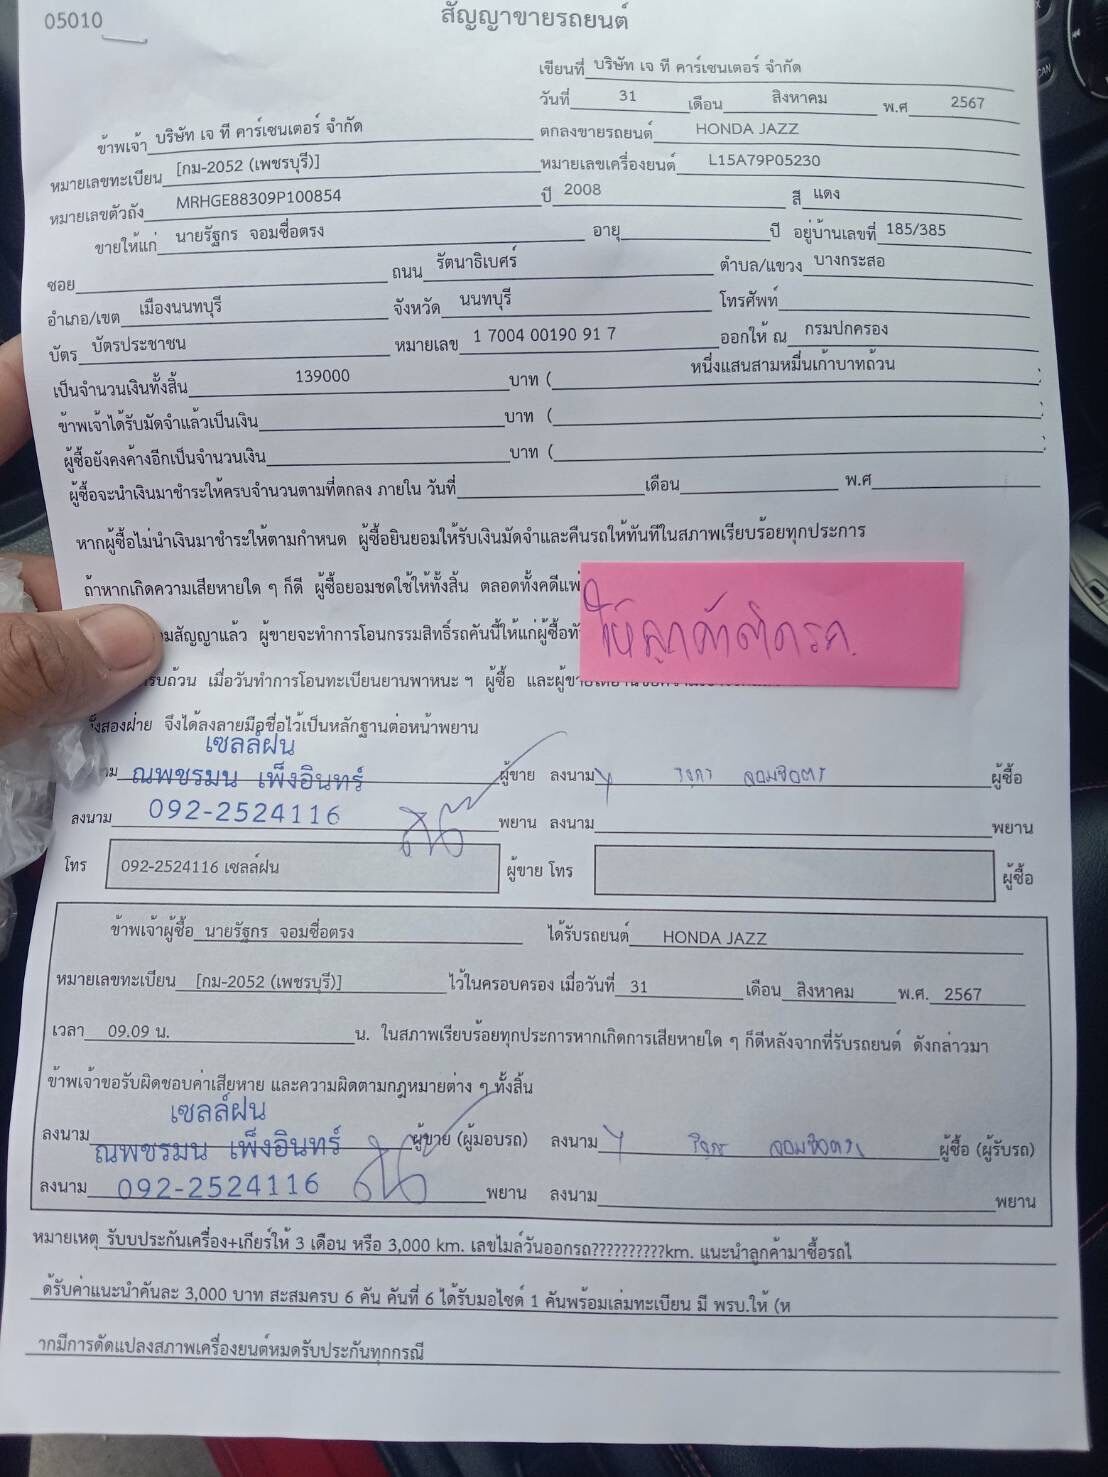 05010
สัญญาขายรถยนต์
เขียนที่ บริษัท เจ ที คาร์เซนเตอร์ จำกัด
วันที่ 31 เดือน สิงหาคม พ.ศ 2567
ข้าพเจ้า บริษัท เจ ที คาร์เซนเตอร์ จำกัด ตกลงขายรถยนต์ HONDA JAZZ
หมายเลขทะเบียน [กม-2052 (เพชรบุรี)] หมายเลขเครื่องยนต์ L15A79P05230
หมายเลขตัวถัง MRHGE88309P100854 ปี 2008 สี แดง
ขายให้แก่ นายรัฐกร จอมซื่อตรง อายุ ปี อยู่บ้านเลขที่ 185/385
ซอย ถนน รัตนาธิเบศร์ ตำบล/แขวง บางกระสอ
อำเภอ/เขต เมืองนนทบุรี จังหวัด นนทบุรี โทรศัพท์
บัตร บัตรประชาชน หมายเลข 1 7004 00190 91 7 ออกให้ ณ กรมปกครอง
เป็นจำนวนเงินทั้งสิ้น 139000 บาท ( หนึ่งแสนสามหมื่นเก้าบาทถ้วน )
ข้าพเจ้าได้รับมัดจำแล้วเป็นเงิน บาท ( )
ผู้ซื้อยังคงค้างอีกเป็นจำนวนเงิน บาท ( )
ผู้ซื้อจะนำเงินมาชำระให้ครบจำนวนตามที่ตกลง ภายใน วันที่ เดือน พ.ศ
หากผู้ซื้อไม่นำเงินมาชำระให้ตามกำหนด ผู้ซื้อยินยอมให้รับเงินมัดจำและคืนรถให้ทันทีในสภาพเรียบร้อยทุกประการ
ถ้าหากเกิดความเสียหายใด ๆ ก็ดี ผู้ซื้อยอมชดใช้ให้ทั้งสิ้น ตลอดทั้งคดีแพ่
ให้ลูกค้าติดรถ
มสัญญาแล้ว ผู้ขายจะทำการโอนกรรมสิทธิ์รถคันนี้ให้แก่ผู้ซื้อทั
รบถ้วน เมื่อวันทำการโอนทะเบียนยานพาหนะ ฯ ผู้ซื้อ และผู้ขา
ทั้งสองฝ่าย จึงได้ลงลายมือชื่อไว้เป็นหลักฐานต่อหน้าพยาน
เซลล์ฝน
าม ณพชรมน เพ็งอินทร์ ผู้ขาย ลงนาม รัฐกร จอมซื่อตรง ผู้ซื้อ
ลงนาม 092-2524116 พยาน ลงนาม พยาน
โทร 092-2524116 เซลล์ฝน ผู้ขาย โทร ผู้ซื้อ
ข้าพเจ้าผู้ซื้อ นายรัฐกร จอมซื่อตรง ได้รับรถยนต์ HONDA JAZZ
หมายเลขทะเบียน [กม-2052 (เพชรบุรี)] ไว้ในครอบครอง เมื่อวันที่ 31 เดือน สิงหาคม พ.ศ. 2567
เวลา 09.09 น. น. ในสภาพเรียบร้อยทุกประการหากเกิดการเสียหายใด ๆ ก็ดีหลังจากที่รับรถยนต์ ดังกล่าวมา
ข้าพเจ้าขอรับผิดชอบค่าเสียหาย และความผิดตามกฎหมายต่าง ๆ ทั้งสิ้น
เซลล์ฝน
ลงนาม ณพชรมน เพ็งอินทร์ ผู้ขาย (ผู้มอบรถ) ลงนาม รัฐกร จอมซื่อตรง ผู้ซื้อ (ผู้รับรถ)
ลงนาม 092-2524116 พยาน ลงนาม พยาน
หมายเหตุ รับบประกันเครื่อง+เกียร์ให้ 3 เดือน หรือ 3,000 km. เลขไมล์วันออกรถ??????????km. แนะนำลูกค้ามาซื้อรถไ
ด้รับค่าแนะนำคันละ 3,000 บาท สะสมครบ 6 คัน คันที่ 6 ได้รับมอไซด์ 1 คันพร้อมเล่มทะเบียน มี พรบ.ให้ (ห
ากมีการดัดแปลงสภาพเครื่องยนต์หมดรับประกันทุกกรณี